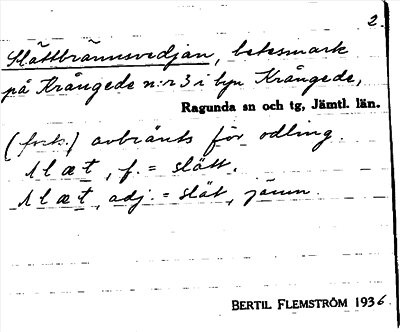 2.
Slättbrännsvedjan, betesmark
på Krångede n:r 3 i byn Krångede,
Ragunda sn och tg, Jämtl. län.
(forts.) avbränts för odling.
slæt, f. = slätt.
slæt, adj. = slät, jämn.
BERTIL FLEMSTRÖM 1936.